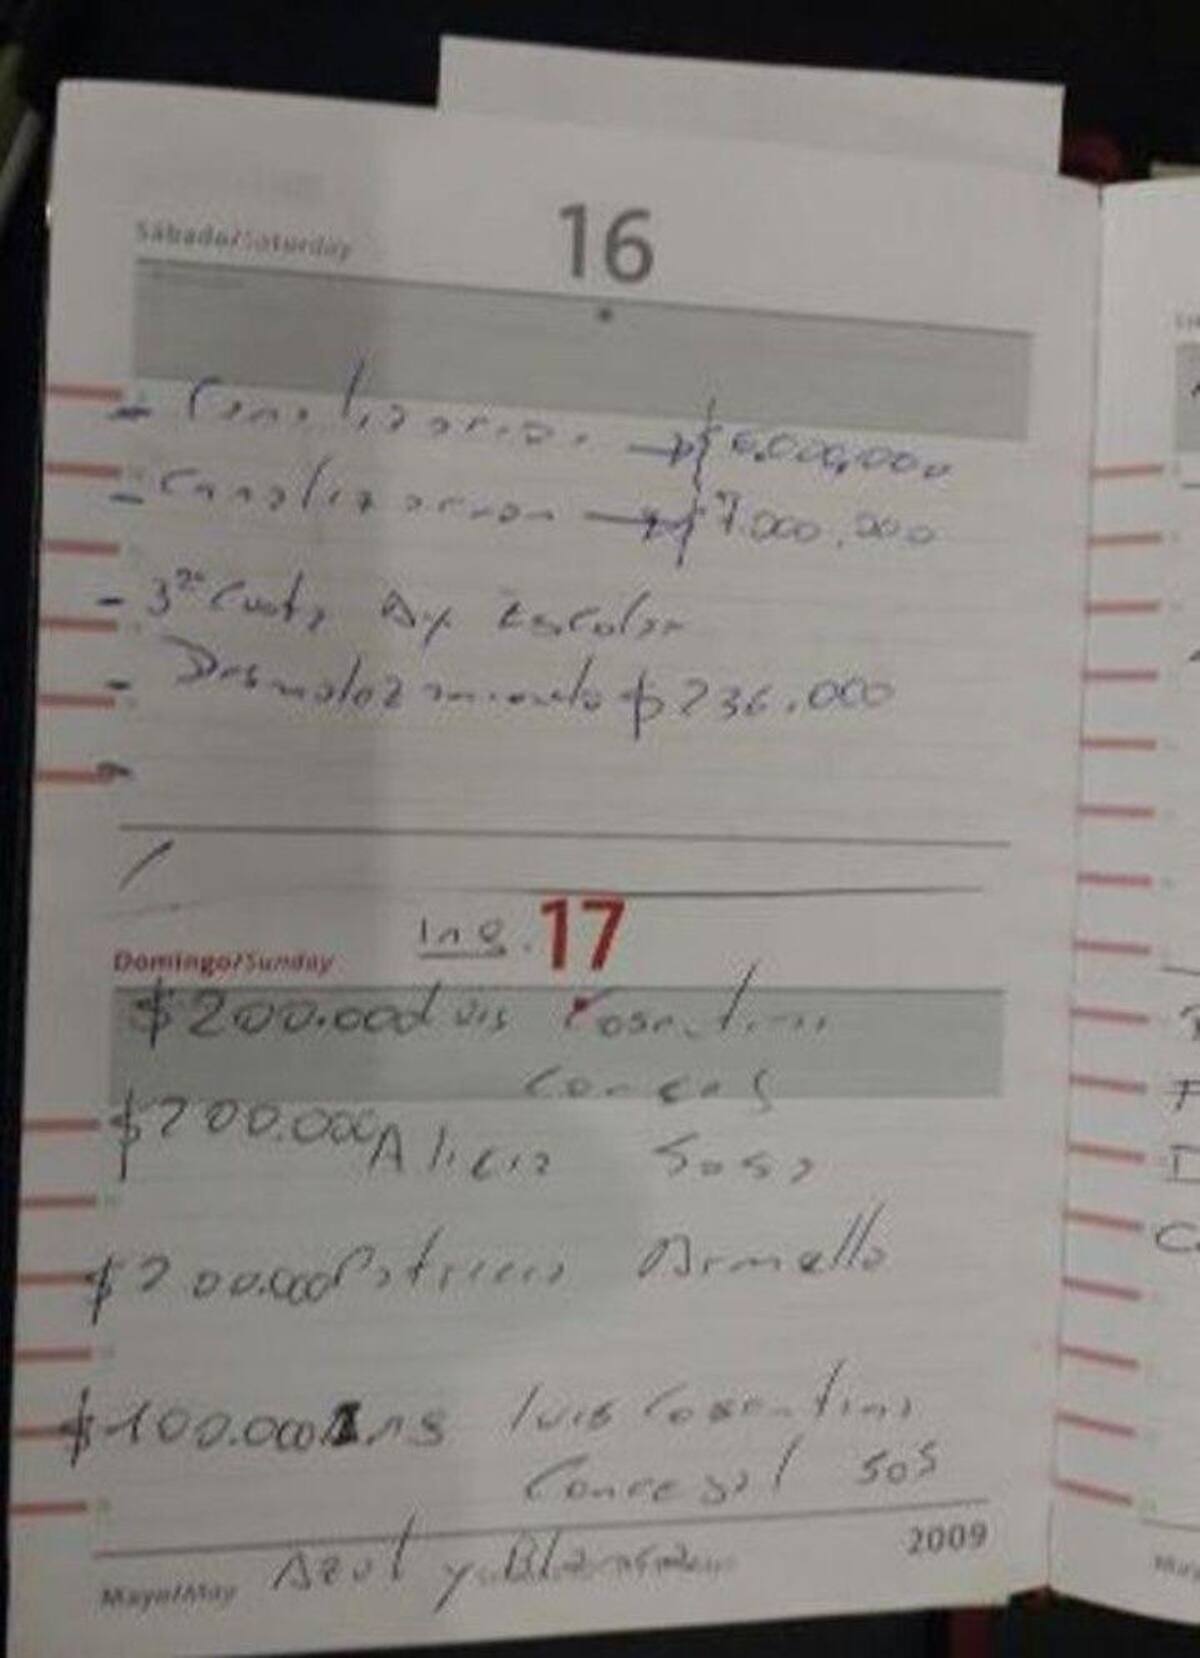 Sábado/Saturday 16
- Canalizacion → $ 6.000.000
- Canalizacion → $ 7.000.000
- 3ra Cuota Ay Escolar
- Desmalezamiento $ 236.000
-
Ing. 17
Domingo/Sunday
$200.000 Luis Cosentino
$200.000 Alicia Sosa
$200.000 Patricio Armello
$100.000 Ing Luis Cosentino
Concejal SOS
2009
Mayo/May Azul y